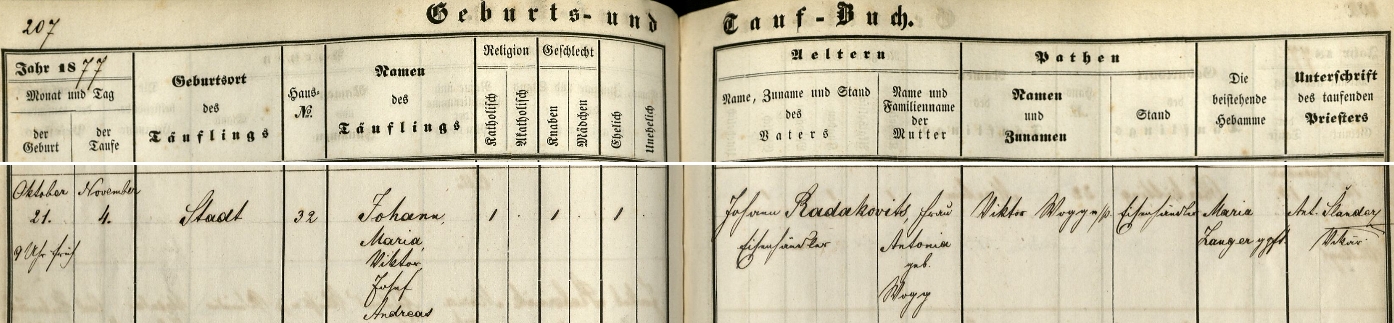 207
Geburts- und Tauf-Buch.
Jahr 1877
Monat und Tag
der Geburt
der Taufe
Geburtsort
des
Täuflings
Haus-
No.
Namen
des
Täuflings
Religion
Katholisch
Akatholisch
Geschlecht
Knaben
Mädchen
Ehelich
Unehelich
Aeltern
Name, Zuname und Stand
des
Vaters
Name und
Familienname
der
Mutter
Pathen
Namen
und
Zunamen
Stand
Die
beistehende
Hebamme
Unterschrift
des taufenden
Priesters
Oktober
21.
9 Uhr früh
November
4.
Stadt
32
Johann,
Maria,
Viktor
Josef
Andreas
1 . 1 . 1 .
Johann Radakovits,
Eisenhändler
Frau
Antonia
geb.
Wogg
Viktor Wogg
Eisenhändler
Maria
Zanger
Ant.
Vikär